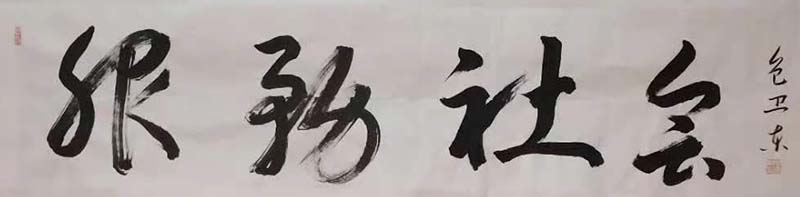 服务社会
包卫东